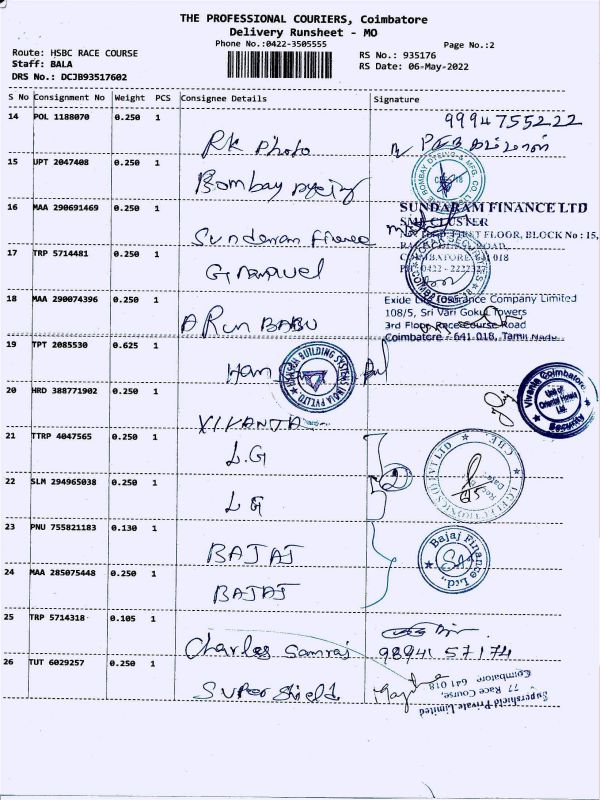 THE PROFESSIONAL COURIERS, Coimbatore
Delivery Runsheet - MO
Phone No.:0422-3505555
Page No.:2
Route: HSBC RACE COURSE
RS No.: 935176
Staff: BALA
RS Date: 06-May-2022
DRS No.: DCJB93517602
S No Consignment No Weight PCS Consignee Details Signature
14 POL 1188070 0.250 1 RK Photo
9994755222
15 UPT 2047408 0.250 1 Bombay Dyeing
16 MAA 290691469 0.250 1 Sunderam Finance
SUNDARAM FINANCE LTD
SME CLUSTER
FIRST FLOOR, BLOCK No : 15,
ROAD,
COIMBATORE 641 018
17 TRP 5714481 0.250 1
18 MAA 290074396 0.250 1 ARUN BABU
Exide Life Insurance Company Limited
108/5, Sri Vari Gokul Towers
3rd Floor, Race Course Road
Coimbatore - 641 018, Tamil Nadu
19 TPT 2085530 0.625 1
BUILDING SYSTEMS INDIA PVT LTD
20 HRD 388771902 0.250 1 VIVANTA
Vivanta Coimbatore
Unit of
Oriental Hotels
Ltd.
Security
21 TTRP 4047565 0.250 1 L.G
22 SLM 294965038 0.250 1 LG
2
23 PNU 755821183 0.130 1 BAJAJ
Bajaj Finance Ltd.,
24 MAA 285075448 0.250 1 BAJAJ
25 TRP 5714318 0.105 1 Charles Samraj
98941 57174
26 TUT 6029257 0.250 1 Super Shield
Supershield Private Limited
77 Race Course,
Coimbatore 641 018